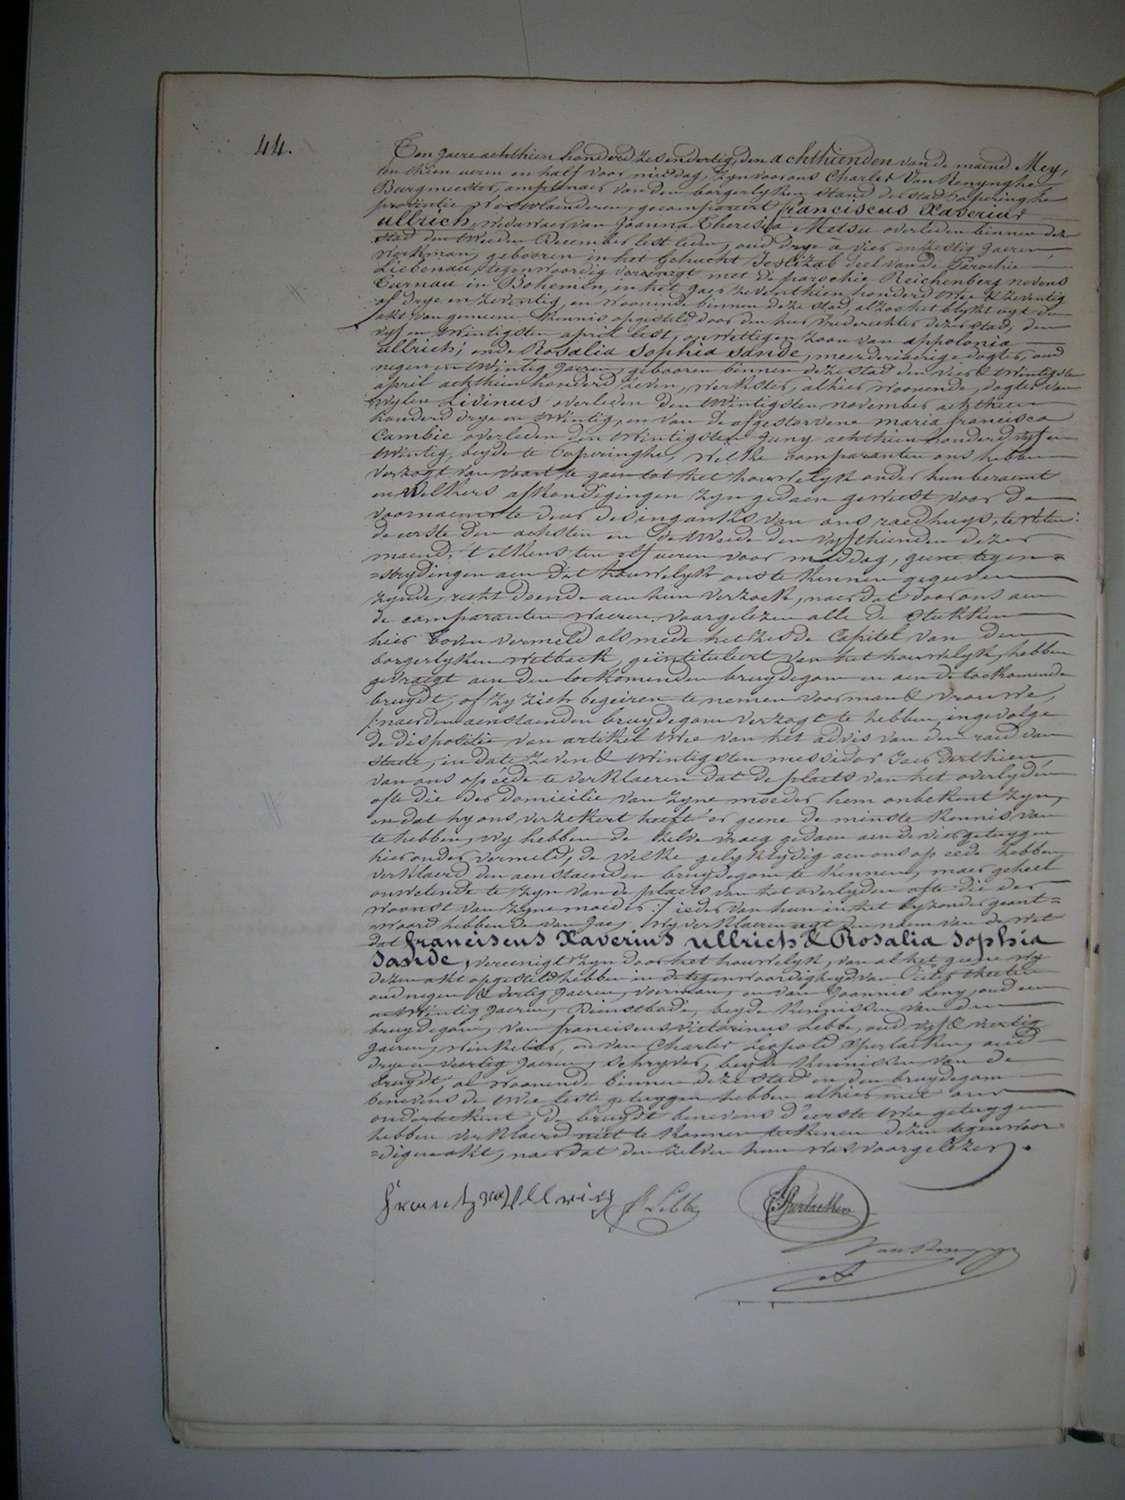 44.
Ten jaere achthien honderd zesendertig, den achthienden van de maend Mey,
ten thien ueren en half voor middag, zyn voor ons Charles Van Renynghe
Burgmeester, amptenaer van den borgerlyken stand der stad Poperinghe
provintie Westvlaenderen, gecompareert franciscus Xaverius
ullrich, wedewaer van Joanna Theresia Metsu overleden binnen deze
stad den tweeden December lest leden, oud drye & zestig Jaeren
Werkman, gebooren in het gehucht deel van de Parochie
Liebenau, tegenwoordig vereenigt met de parochie Reichenberg nevens
Turnau in Bohemen, in het Jaer zeventhien honderd twee & zeventig
of drye en zeventig, en woonende binnen deze stad, alzoo het blykt uyt den
akt van gemeene kennis opgesteld door den heer vrederechter dezer stad, den
vyf en twintigsten april lest, onwettigen zoon van appolonia
ullrich; ende Rosalia Sophia Sande, meerderjaerige dogter, oud
negen en twintig Jaeren, gebooren binnen deze stad den vier & twintigsten
april achthien honderd zeven, werkster, alhier woonende, dogter van
wylen Livinus overleden den twintigsten november achthien
honderd drye en twintig, en van de afgestorvene maria francisca
Cambie overleden den twintigsten Juny achthien honderd vyf en
twintig, beyde te Poperinghe, Welke comparanten ons hebben
verzogt van voort te gaen tot het houwelyk onder hun beraemt
en welkers afkondigingen zyn gedaen geweest voor de
voornaemste deur des inganks van ons raedhuys, te weten:
de eerste den achsten en de tweede den vyfthienden dezer
maend, t'elkens ten elf ueren voor middag, geene tegen=
=strydingen aen dit houwelyk ons te kennen gegeven
zynde, recht doende aen hun verzoek, naer dat door ons aen
de comparanten waeren voorgelezen alle de stukken
hier boven vermeld als mede het zesde Capitel van den
borgerlyken wetboek, geïntituleert van het houwelyk, hebben
gevraegt aen den toekomenden bruydegom en aen de toekomende
bruydt, of zy zich begeiren te nemen voor man & vrouwe,
/:naer den aenstaenden bruydegom verzogt te hebben ingevolge
de dispositie van artikel twee van het advis van den raed van
state, in date zeven & twintigsten messidor Jaer derthien,
van ons op eede te verklaeren dat de plaets van het overlyden
ofte die der domicilie van zyne moeder hem onbekent zyn,
en dat hy ons verzekert heeft er geene de minste kennis van
te hebben, wy hebben de zelve vraeg gedaen aen de vier getuygen
hier onder vermeld, de welke gelyktydig aen ons op eede hebben
verklaerd den aenstaenden bruydegom te kennen, maer geheel
onwetende te zyn van de plaets van het overlyden ofte die der
woonst van zyne moeder:/ ieder van hun in het byzonder geant=
=woord hebbende van Jae; Wy verklaeren uyt den naem van de wet
dat franciscus Xaverius ullrich & Rosalia Sophia
Sande, vereenigt zyn door het houwelyk, van al het geene wy
dezen akt opgesteld hebben in de tegenwoordigheyd van
oud negen & dertig Jaeren, voerman, en van Joannis Leny, oud een
en twintig Jaeren, Dienstbode, beyde kennissen van den
bruydegom, van franciscus victorinus Lebbe, oud vyf & veertig
Jaeren, winkelier, en van Charles Leopold Sperlaeken, oud
drye en veertig Jaeren, schryver, beyde kennissen van de
bruydt, al woonende binnen deze stad en den bruydegom
benevens de twee leste getuygen hebben alhier met ons
onderteekent, de bruydt benevens d'eerste twee getuygen
hebben verklaerd niet te konnen teekenen dezen tegenwoor=
=digen akt, naer dat den zelven hun was voorgelezen.
Frantz Ullrich
f Lebbe
Sperlaeken
Van Renynghe